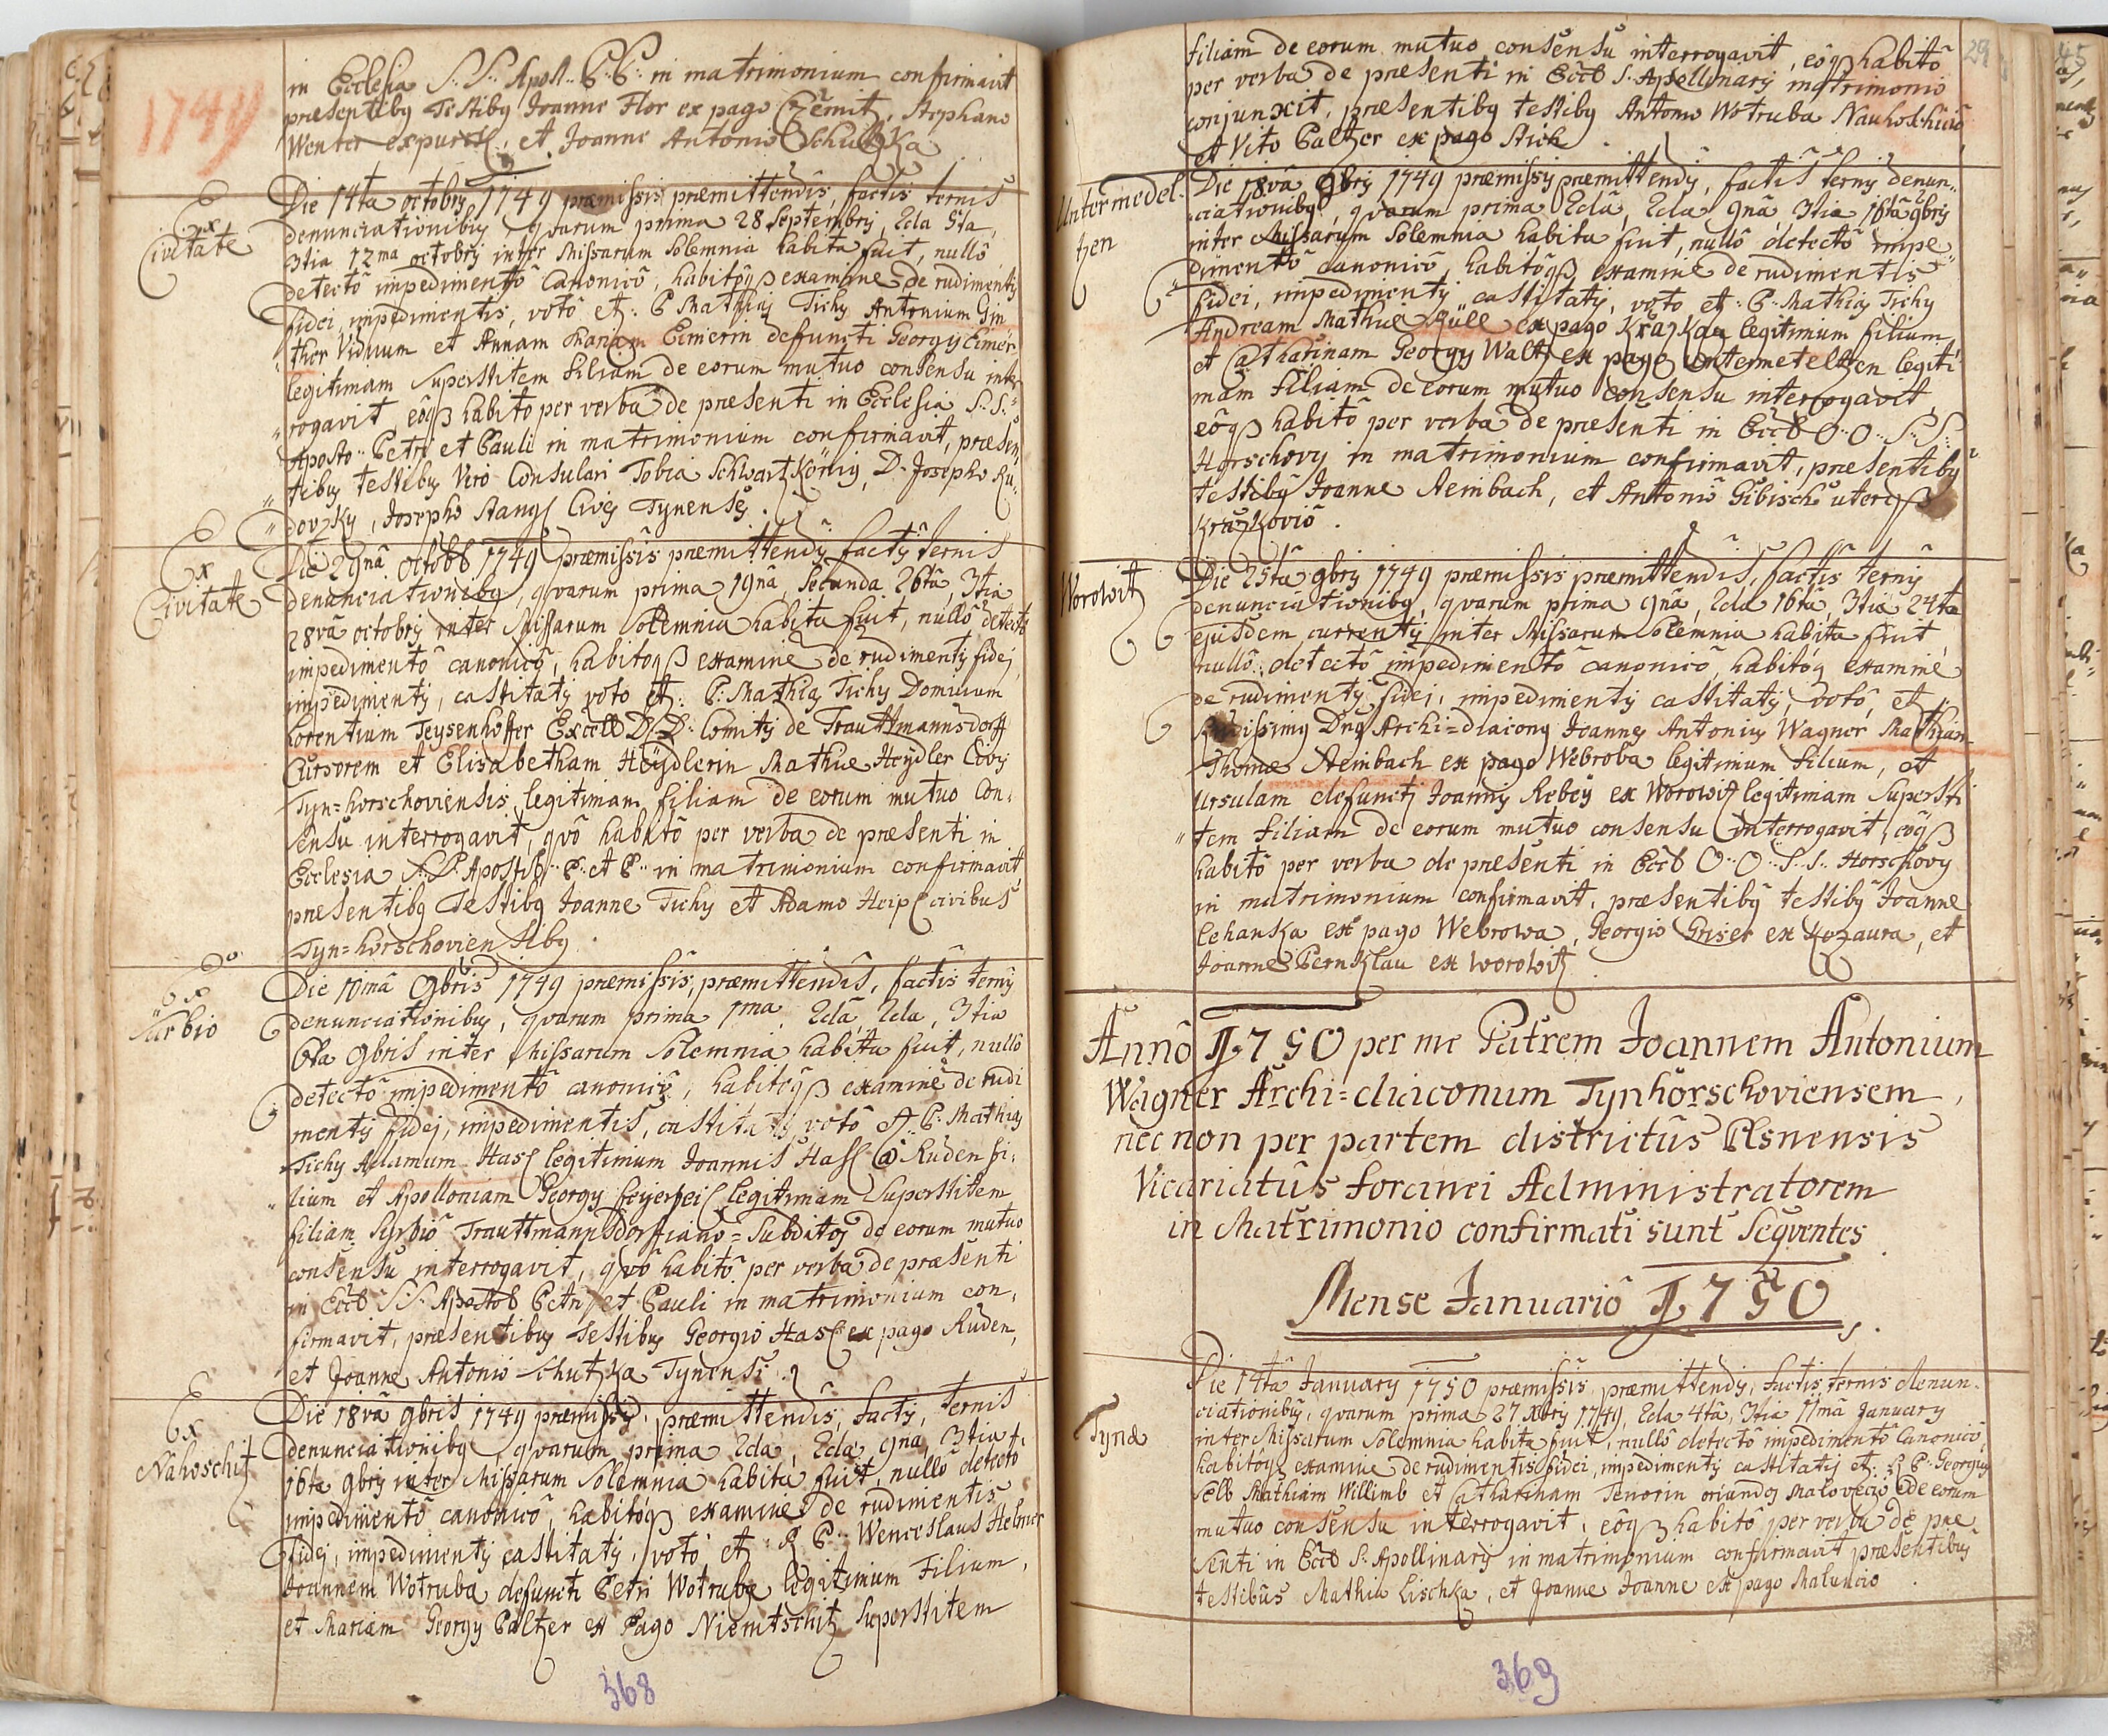 1749
in Ecclesia S: S: Apost: P: P: in matrimonium confirmavit
praesentibq Testibq Joanne Flor ex pago Czemitz, Stephano
Wenter et Joanne Antonio Schutzka
Ex Civitate
Die 14ta octobrij 1749 praemissis praemittendis, factis ternis
denunciationibus quarum prima 28 Septembrij, 2da 5ta,
3tia 12ma octobrij inter Missarum Solemnia habita fuit, nullô
detectô impedimentô Canonicô, habitôqß examine de rudimentis
fidei, impedimentis, votô et: P Mathias Tichy Antonium Gin
ther Viduum et Annam Mariam Eimerin defuncti Georgij Eimer
legitimam Superstitem filiam de eorum mutuo consensu inter
rogavit eôqß habito per verba de praesenti in Ecclesia S: S:
Aposto: Petri et Pauli in matrimonium confirmavit, praesen
tibus testibus Viro Consulari Tobia Schwartzkönig, D. Josepho Ru
dovsky, Josepho Stangl Cives Tynenses.
Ex Civitate
Die 29nâ octob 1749 praemissis praemittendis factis ternis
denunciationibq, quarum prima 19nâ, Secunda 26tâ, 3tia
28vâ octobrij inter Missarum Solemnia habita fuit, nullô detectô
impedimentô canonicô, habitoqß examine de rudimentis fidej
impedimentis, castitatis voto et: P: Mathias Tichy Dominum
Lorentium Teysenhoffer Excell D: D: Comitis de Trauttmannsdorff
Cursorem et Elisabetham Heydlerin Mathiae Heydler Civis
Tyn=horschoviensis legitimam filiam de eorum mutuo Con
sensu interrogavit, quô habitô per verba de praesenti in
Ecclesia S: S: Apostol: P: et P: in matrimonium confirmavit
praesentibq Testibq Joanne Tichy et Adamo Heipl civibus
Tyn=horschoviensibq.
Ex Surbio
Die 10imâ 9bris 1749 praemissis, praemittendis, factis ternis
denunciationibus, quarum prima 1ma, 2dâ 2da, 3tia
9bris inter Missarum Solemnia habita fuit, nullô
detectô impedimentô canonicô, habitoqß examine de rudi
mentis fidej, impedimentis, castitatis votô et: P: Mathias
Tichy Adamum Hasl legitimum Joannis Hasl Ruden fi
lium et Apolloniam Georgij legitimam Superstitem
filiam Surbiô Trauttmannsdorffiano=Subditos de eorum mutuo
consensu interrogavit, quô habitô per verba de praesenti
in Eccl S: S: Apostol Petri et Pauli in matrimonium con
firmavit, praesentibus Testibus Georgio Hasl ex pago Ruden,
et Joanne Antonio Schutzka Tynensi.
Ex Nahoschitz
Die 18vâ 9bris 1749 praemissis, praemittendis, factis, ternis
denunciationibq, quarum prima 2da, 2da 9na, 3tia
16ta 9bris inter Missarum Solemnia habita fuit, nullô detectô
impedimentô canonicô, habitôqß examine de rudimentis
fidej, impedimentis castitatis, votô et R P: Wenceslaus Hebner
Joannem Wotruba defuncti Petri Wotruba legitimum Filium,
et Mariam Georgij Paltzer ex Pago Niemtschitz Superstitem
368
29
filiam de eorum mutuo consensu interrogavit, eôqß habitô
per verba de praesenti in Eccl S: Apollinaris matrimonio
conjunxit, praesentibq testibq Antonio Wotruba
et Vito Paltzer ex pago Stich.
Untermedel
tzen
Die 18vâ 9bris 1749 praemissis praemittendis, factis ternis denun
ciationibq, quarum prima 2da, 2da 9nâ, 3tia 16tâ 9bris
inter Missarum Solemnia habita fuit, nullô detectô impe
dimentô canonicô, habitôqß examine de rudimentis
fidei, impedimentis castitatis, voto et: P: Mathias Tichy
Andream Mathiae Müll ex pago legitimum filium
et Catharinam Georgij Waltz ex pago Untermetelitzen legiti
mam filiam de eorum mutuo consensu interrogavit,
eôqß habitô per verba de praesenti in Eccl O: O: S: S:
Horschovij in matrimonium confirmavit, praesentibq
testibq Joanne Aeinbach, et Antonio Gibisch uterqß
Krazkoviô.
Worowitz
Die 25ta 9bris 1749 praemissis praemittendis, factis ternis
denunciationibq, quarum prima 9nâ, 2da 16tâ, 3tiâ 24ta
ejusdem currentis inter Missarum Solemnia habita fuit
nullô detectô impedimentô canonicô, habitôq examine
de rudimentis fidei, impedimentis castitatis, votô, et
Dnq Archi=diaconq Joannes Antonius Wagner Mathiam
Thomae Aeinbach ex pago Webroba legitimum filium, et
Ursulam defuncti Joannis Rebey ex Worowitz legitimam Supersti
tem filiam de eorum mutuo consensu interrogavit, eôqß
habitô per verba de praesenti in Eccl O: O: S: S: Horschovij
in matrimonium confirmavit, praesentibq testibq Joanne
Lehanka ex pago Webrowa, Georgio Griser ex et
Joanne Pernklau ex Worowitz
Annô 1750 per me Patrem Joannem Antonium
Wagner Archi=diaconum Tynhorschoviensem,
nec non per partem districtûs Plsnensis
Vicariatûs foranei Administratorem
in Matrimonio confirmati sunt Sequentes.
Mense Januariô 1750.
Tynae
Die 14tâ Januarij 1750 praemissis praemittendis, factis ternis denun
ciationibq, quarum prima 27 Xbris 1749, 2da 4tâ, 3tia 11mâ January
inter Missarum Solemnia habita fuit, nullô detectô impedimentô Canonicô,
habitôq examine de rudimentis fidei, impedimentis castitatis et: R P: Georgius
Selb Mathiam Willimb et Catharinam Tenorin oriundos Malovecio de eorum
mutuo consensu interrogavit, eôqß habitô per verba de prae
senti in Eccl S: Apollinaris in matrimonium confirmavit praesentibus
testibus Mathia Lischka, et Joanne Joanne ex pago Maluncio.
369